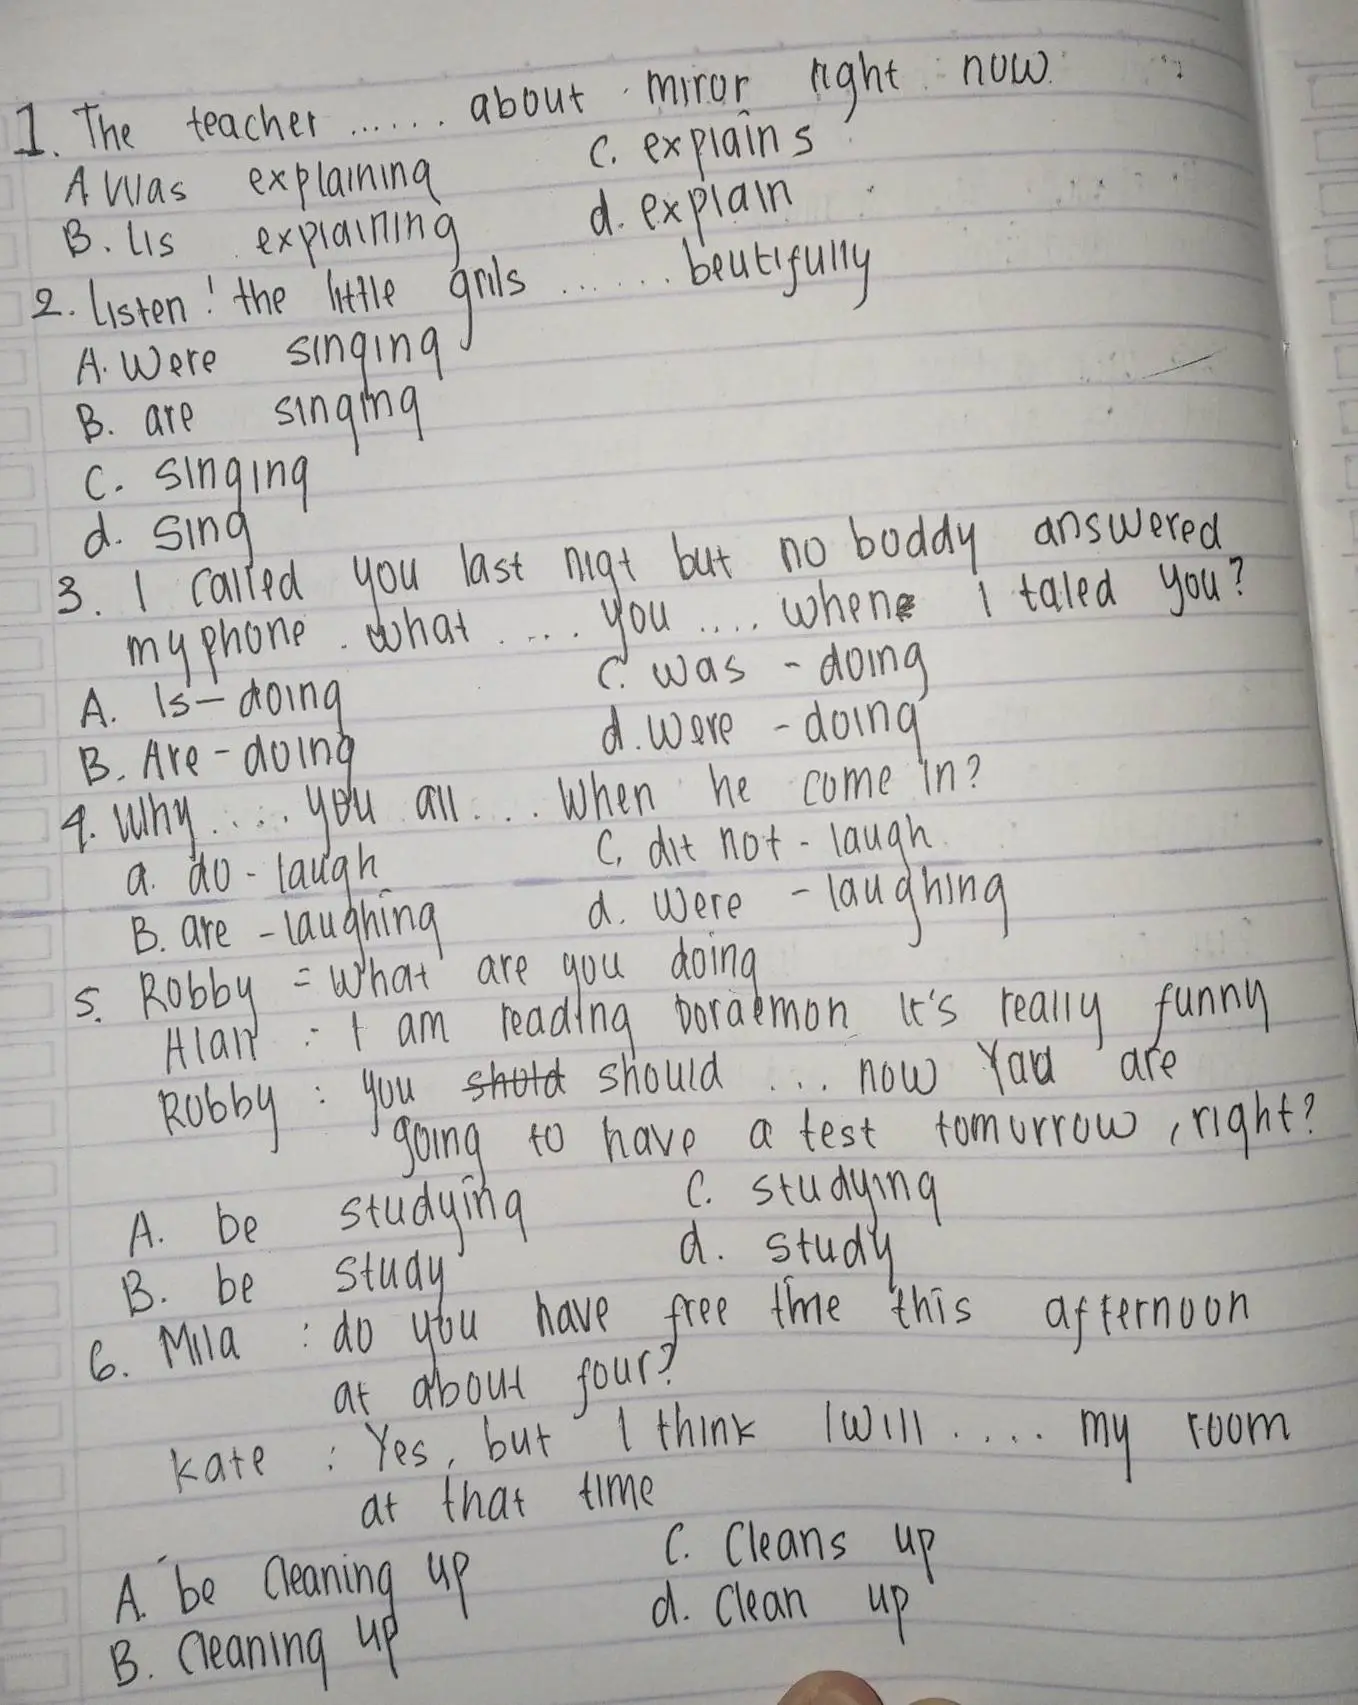 1. The teacher ...... about miror right now
A Was explaining C. explains
B. Iis explaining d. explain
2. Listen! the little grils ...... beutifully
A. Were singing
B. are singing
C. Singing
d. Sing
3. I called you last nigt but no boddy answered
my phone. what .... you .... when i taled you?
A. Is - doing C. was - doing
B. Are - doing d. were - doing
4. Why ..... you all ... when he come in?
a. do - laugh C. dit not - laugh
B. are - laughing d. were - laughing
5. Robby = What are you doing
Alan : I am reading Doraemon It's really funny
Robby : you shold should ... now You are
going to have a test tomurrow, right?
A. be studying C. studying
B. be study d. study
6. Mila : do you have free time this afternoon
at about four?
Kate : Yes, but I think I will .... my room
at that time
A. be Cleaning up C. Cleans up
B. Cleaning up d. Clean up